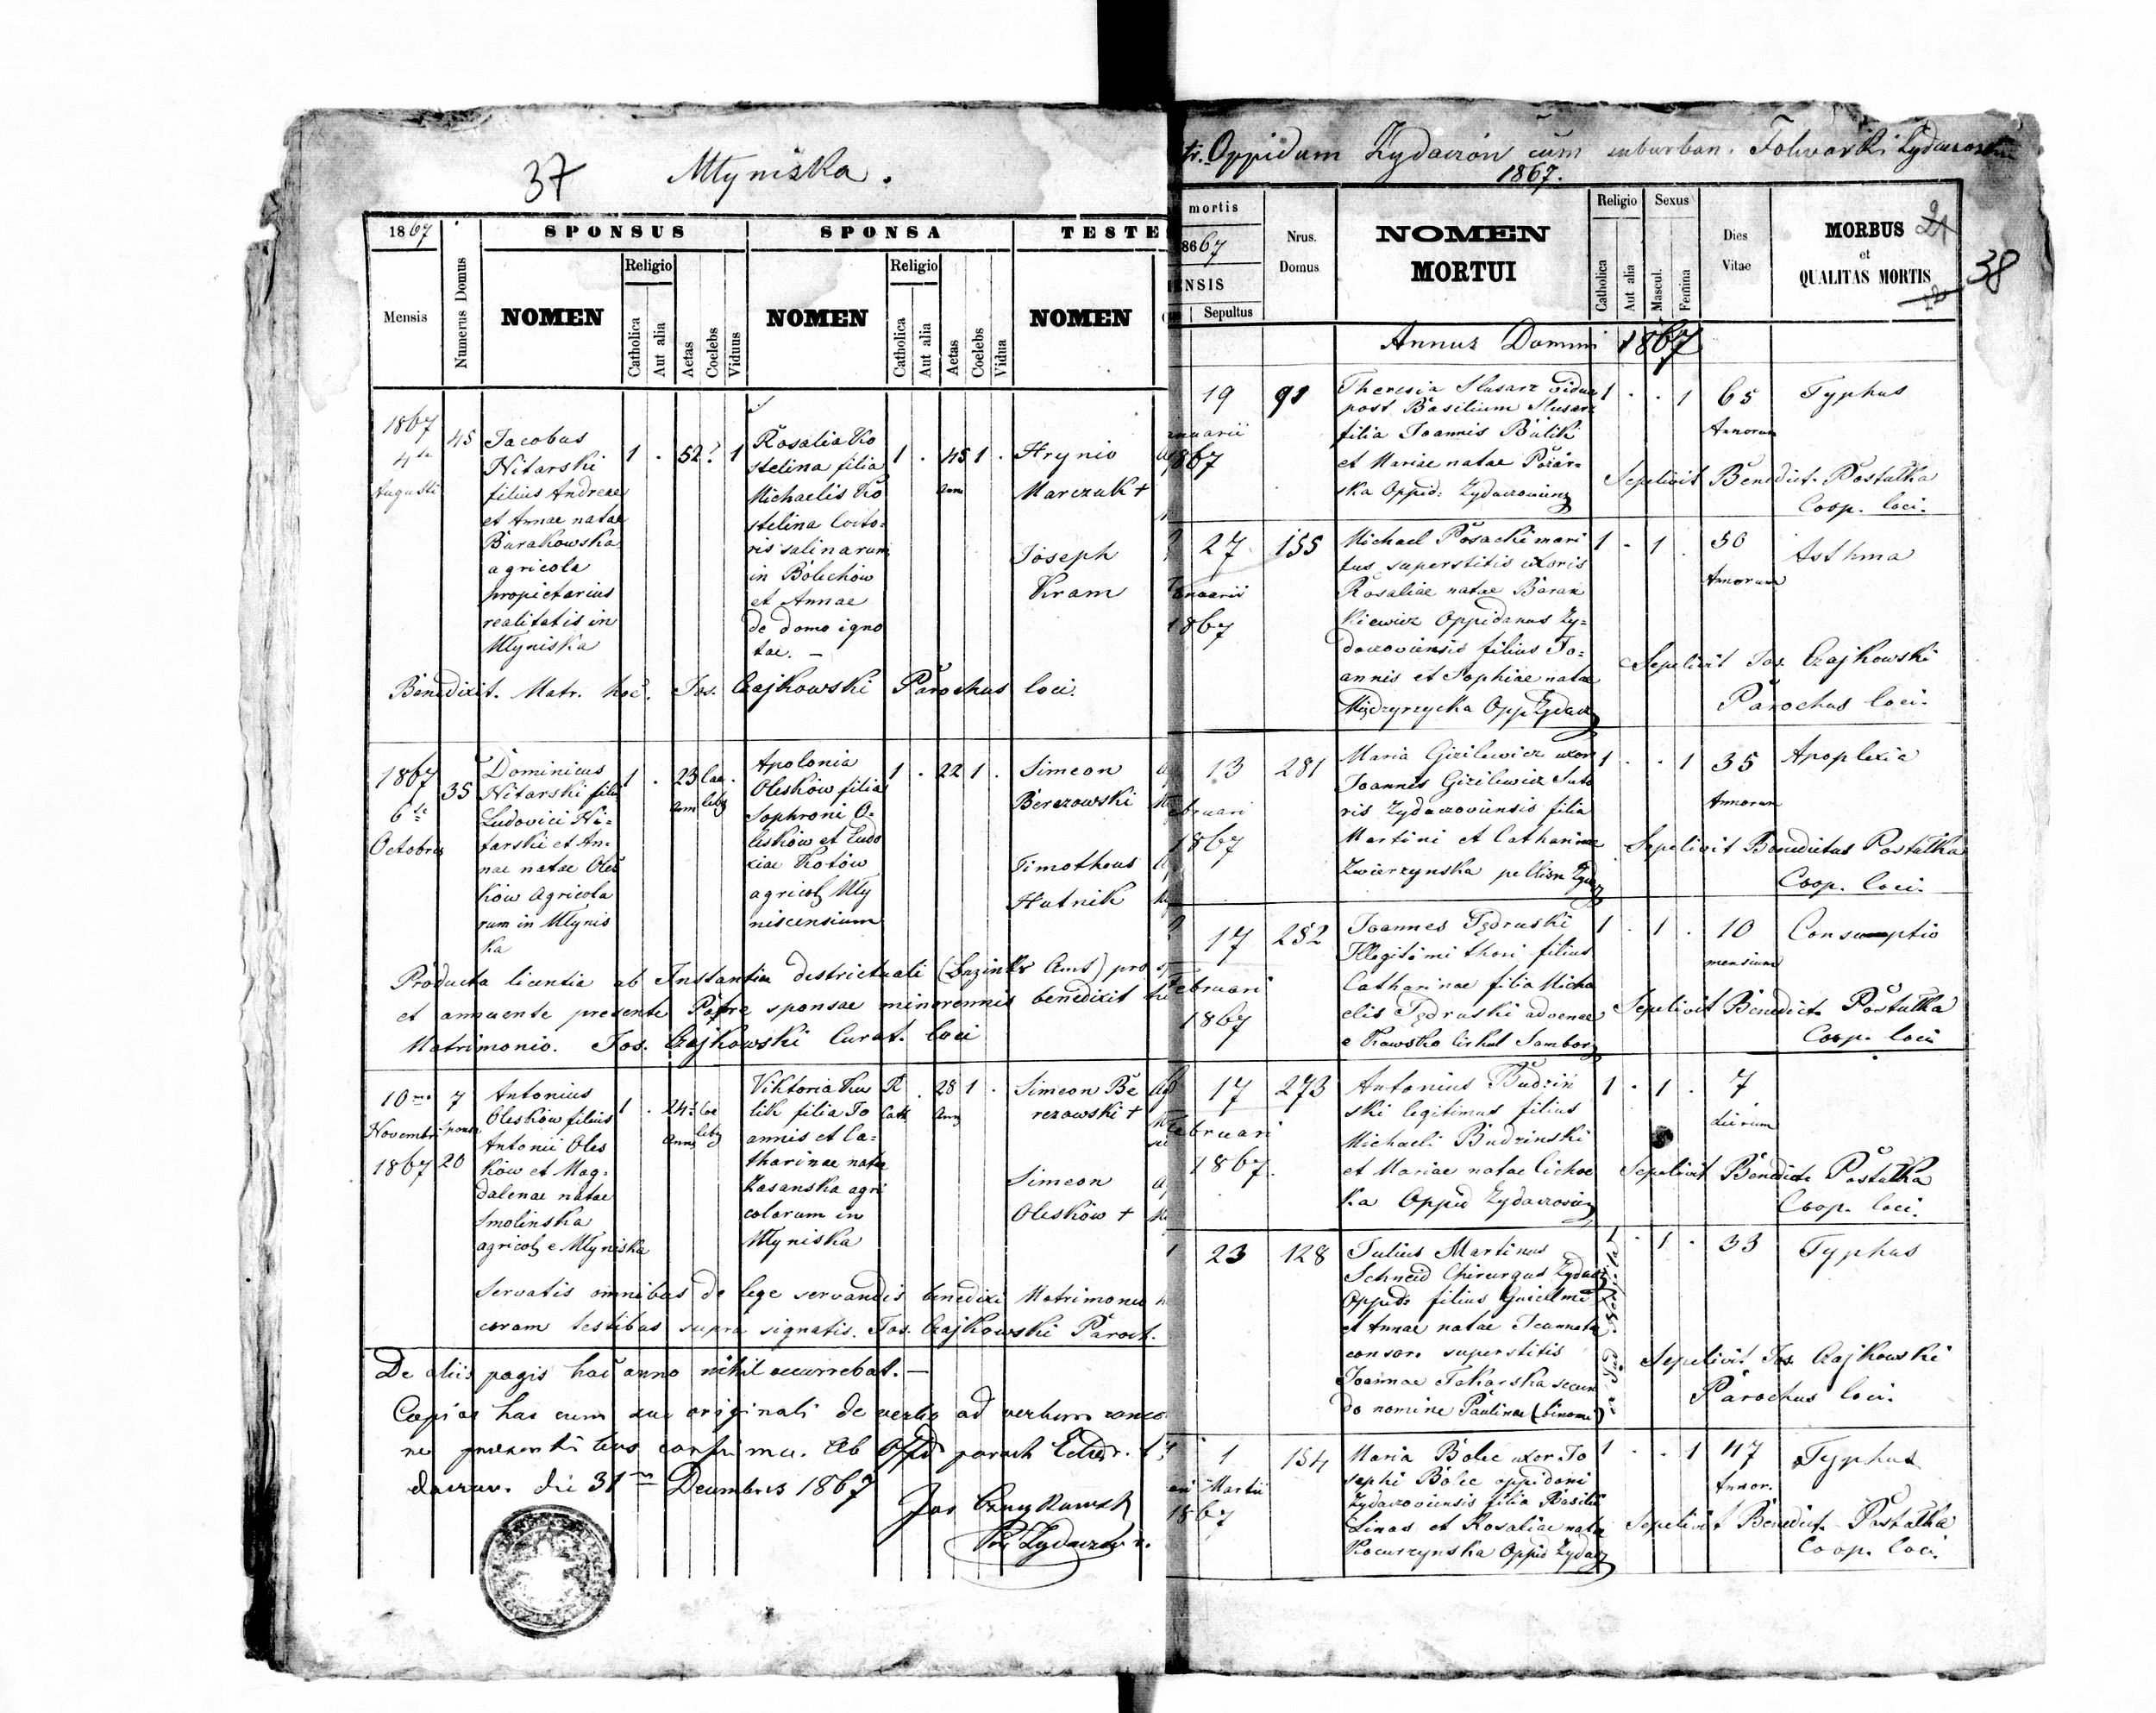 37 Młyniska.
1867
SPONSUS
SPONSA
TESTE
Mensis
Numerus Domus
NOMEN
Religio
Catholica
Aut alia
Aetas
Coelebs
Viduus
NOMEN
Religio
Catholica
Aut alia
Aetas
Coelebs
Vidua
NOMEN
1867
4ta
Augusti
45
Jacobus
Nitarski
filius Andreae
et Annae natae
Burakowska
agricola
propietarius
realitatis in
Młyniska
1 . 52 1
Rosalia Ko
stelina filia
Michaelis Ko
stelina
ris salinarum
in Bolechow
et Annae
de domo igno
tae. —
1 . 45 1 .
Hrynio
Marczuk +
Joseph
Kram
Benedixit. Matr. hoc. Jos. Czajkowski Parochus loci.
1867
6ta
Octobris
35
Dominicus
Nitarski filiu
Ludovici Ni=
tarski et An=
nae natae Oles
ków Agricola
rum in Młynis
ka
1 . 23 Cae .
Ann lebs
Apolonia
Oleskow filia
Sophroni O=
leskow et Eudo
xiae Kotów
agricol Mły
niscensium
1 . 22 1 .
Simeon
Berezowski
Timotheus
Hutnik
Producta licentia ab Instantia districtuali (Bezirks Amt) pro
et annuente presente Patre sponsae minorennis benedixit
Matrimonio. Jos. Czajkowski Curat. loci
10ma
Novembri
1867
7
sponsa
20
Antonius
Oleskow filius
Antonii Oles
ków et Mag=
dalenae natae
Smolinska
agricol e Młyniska
1 . 24 Coe
Ann lebs
Viktoria Ku
lik filia Jo
annis et Ca=
tharinae nata
Zasanska agri
colorum in
Młyniska
R . 28 1 .
Cath Ann
Simeon Be
rezowski +
Simeon
Oleskow +
Servatis omnibus de lege servandis benedixi Matrimonio
coram testibus supra signatis. Jos. Czajkowski Paroch.
De aliis pagis hac anno nihil occurrebat. —
Copias has cum suo originali de verbo ad verbum conco
ne praesentibus confirmo. Ab Offo paroch
die 31ma Decembris 1867
Oppidum Zydaczow cum suburban. Folwarki Zydaczow
1867.
mortis
867
ENSIS
Sepultus
Nrus.
Domus
NOMEN
MORTUI
Religio
Catholica
Aut alia
Sexus
Mascul.
Femina
Dies
Vitae
MORBUS
et
QUALITAS MORTIS
38
Annus Domini 1867
19
anuarii
1867
91
Theresia Slusarz vidua
post Basilium Slusarz
filia Joannis Bulik
et Mariae natae Pozar=
ska Oppid: Zydaczoviens
1 . . 1
65
Annorum
Typhus
Sepelivit Benedict. Postałka
Coop. loci.
27
Januarii
1867
155
Michael Posacki mari
tus superstitis uxoris
Rosaliae natae Baran
kiewicz Oppidanus Zy=
daczoviensis filius Jo=
annis et Sophiae natae
Międzyrzycka Opp Zydacz
1 . 1 .
50
Annorum
Asthma
Sepelivit Jos. Czajkowski
Parochus loci.
13
ebruari
1867
281
Maria Gizilewicz uxor
Joannis Gizilewicz Suto
ris Zydaczoviensis filia
Martini et Catharinae
Zwierzynska pellion Zydacz
1 . . 1
35
Annorum
Apoplexia
Sepelivit Benedictus Postałka
Coop. loci.
17
Februari
1867
282
Joannes Tędruski
Illegitimi thori filius
Catharinae filia Micha
elis Tędruski advenae
e Krawsko Cirkul Sambor
1 . 1 .
10
mensium
Consumptio
Sepelivit Benedict. Postałka
Coop. loci
17
Februari
1867.
273
Antonius Budzin
ski legitimus filius
Michaeli Budzinski
et Mariae natae Cichoc
ka Oppid Zydaczovien
1 . 1 .
7
dierum
Sepelivit Benedict. Postałka
Coop. loci.
23
128
Julius Martinus
Schneid Chirurgus Zydacz
Oppid. filius Guielmi
et Annae natae Jeannata
consors superstitis
Joannae Tokarska secun
do nomine Paulinae (binomi)
1 . 1 .
33
Typhus
Sepelivit Jos. Czajkowski
Parochus loci.
1
Martii
1867
154
Maria Bolec uxor Jo
sephi Bolec oppidani
Zydaczoviensis filia Basilii
Linas et Rosaliae nata
Kocurzynska Oppid Zydacz
1 . . 1
47
Annor.
Typhus
Sepelivit Benedict. Postałka
Coop. loci.